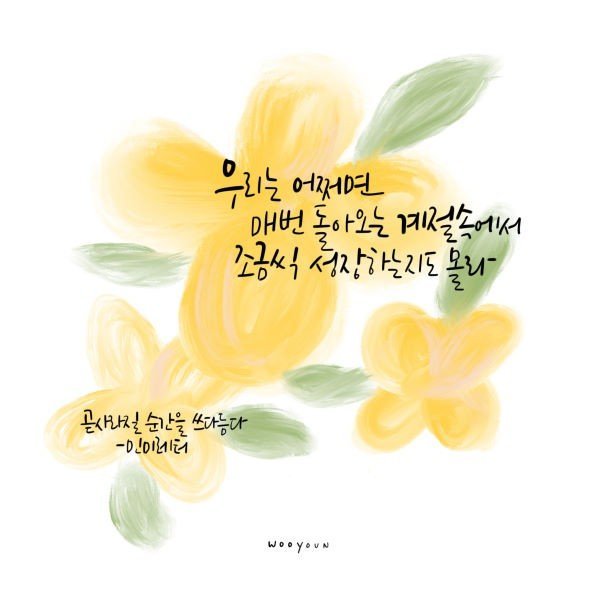 우리는 어쩌면
매번 돌아오는 계절속에서
조금씩 성장하는지도 몰라
곧사라질 순간을 쓰다듬다
-민이레터
WOOYOUN